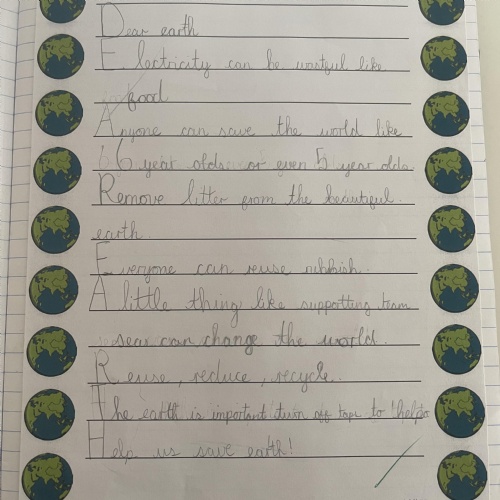 Dear earth
Electricity can be wastful like
food
Anyone can save the world like
6 year olds or even 5 year olds.
Remove litter from the beautiful
earth.
Everyone can reuse rubbish.
A little thing like supporting team
seas can change the world.
Reuse, reduce, recycle.
The earth is important turn off taps to help
Help us save earth!